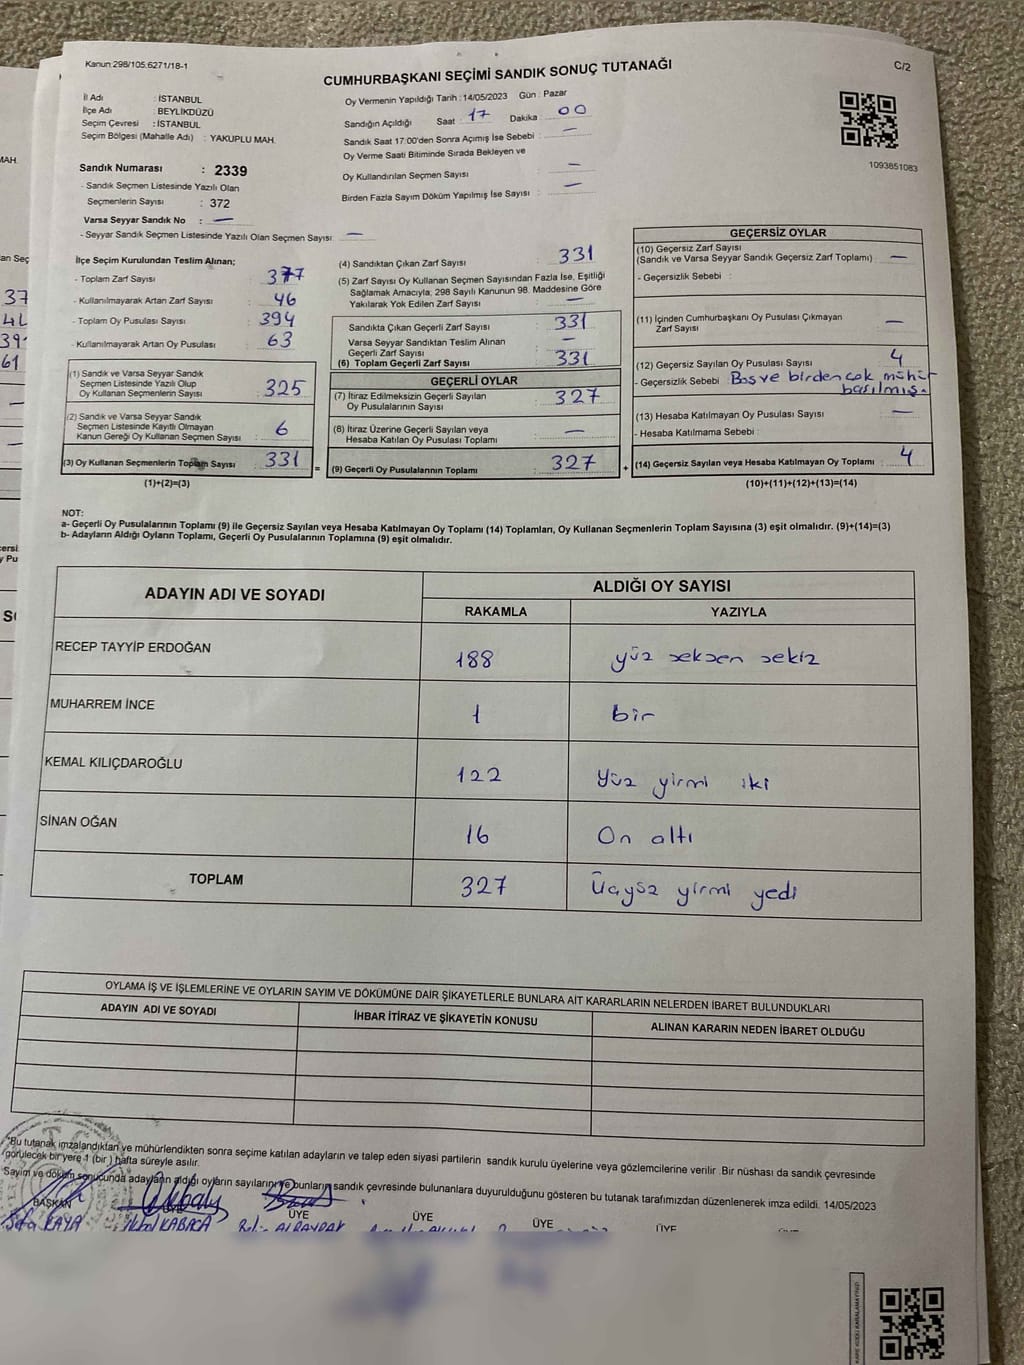 Kanun:298/105.6271/18-1
C/2
CUMHURBAŞKANI SEÇİMİ SANDIK SONUÇ TUTANAĞI
İl Adı : İSTANBUL
İlçe Adı : BEYLİKDÜZÜ
Seçim Çevresi : İSTANBUL
Seçim Bölgesi (Mahalle Adı) : YAKUPLU MAH.
Sandık Numarası : 2339
- Sandık Seçmen Listesinde Yazılı Olan
Seçmenlerin Sayısı : 372
Varsa Seyyar Sandık No : —
- Seyyar Sandık Seçmen Listesinde Yazılı Olan Seçmen Sayısı: —
Oy Vermenin Yapıldığı Tarih :14/05/2023 Gün : Pazar
Sandığın Açıldığı Saat : 17 Dakika : 00
Sandık Saat 17:00'den Sonra Açımış İse Sebebi : —
Oy Verme Saati Bitiminde Sırada Bekleyen ve
Oy Kullandırılan Seçmen Sayısı : —
Birden Fazla Sayım Döküm Yapılmış İse Sayısı : —
1093851083
İlçe Seçim Kurulundan Teslim Alınan;
- Toplam Zarf Sayısı : 377
- Kullanılmayarak Artan Zarf Sayısı : 46
- Toplam Oy Pusulası Sayısı : 394
- Kullanılmayarak Artan Oy Pusulası : 63
(1) Sandık ve Varsa Seyyar Sandık
Seçmen Listesinde Yazılı Olup
Oy Kullanan Seçmenlerin Sayısı : 325
(2) Sandık ve Varsa Seyyar Sandık
Seçmen Listesinde Kayıtlı Olmayan
Kanun Gereği Oy Kullanan Seçmen Sayısı : 6
(3) Oy Kullanan Seçmenlerin Toplam Sayısı : 331
(1)+(2)=(3)
=
(4) Sandıktan Çıkan Zarf Sayısı : 331
(5) Zarf Sayısı Oy Kullanan Seçmen Sayısından Fazla İse, Eşitliği
Sağlamak Amacıyla; 298 Sayılı Kanunun 98. Maddesine Göre
Yakılarak Yok Edilen Zarf Sayısı : —
Sandıkta Çıkan Geçerli Zarf Sayısı : 331
Varsa Seyyar Sandıktan Teslim Alınan
Geçerli Zarf Sayısı : —
(6) Toplam Geçerli Zarf Sayısı : 331
GEÇERLİ OYLAR
(7) İtiraz Edilmeksizin Geçerli Sayılan
Oy Pusulalarının Sayısı : 327
(8) İtiraz Üzerine Geçerli Sayılan veya
Hesaba Katılan Oy Pusulası Toplamı : —
(9) Geçerli Oy Pusulalarının Toplamı : 327
+
GEÇERSİZ OYLAR
(10) Geçersiz Zarf Sayısı
(Sandık ve Varsa Seyyar Sandık Geçersiz Zarf Toplamı) : —
- Geçersizlik Sebebi :
(11) İçinden Cumhurbaşkanı Oy Pusulası Çıkmayan
Zarf Sayısı : —
(12) Geçersiz Sayılan Oy Pusulası Sayısı : 4
- Geçersizlik Sebebi : Boş ve birden çok mühür
basılmış.
(13) Hesaba Katılmayan Oy Pusulası Sayısı : —
- Hesaba Katılmama Sebebi :
(14) Geçersiz Sayılan veya Hesaba Katılmayan Oy Toplamı : 4
(10)+(11)+(12)+(13)=(14)
NOT:
a- Geçerli Oy Pusulalarının Toplamı (9) ile Geçersiz Sayılan veya Hesaba Katılmayan Oy Toplamı (14) Toplamları, Oy Kullanan Seçmenlerin Toplam Sayısına (3) eşit olmalıdır. (9)+(14)=(3)
b- Adayların Aldığı Oyların Toplamı, Geçerli Oy Pusulalarının Toplamına (9) eşit olmalıdır.
ADAYIN ADI VE SOYADI
ALDIĞI OY SAYISI
RAKAMLA YAZIYLA
RECEP TAYYİP ERDOĞAN 188 yüz seksen sekiz
MUHARREM İNCE 1 bir
KEMAL KILIÇDAROĞLU 122 Yüz yirmi iki
SİNAN OĞAN 16 On altı
TOPLAM 327 Üçyüz yirmi yedi
OYLAMA İŞ VE İŞLEMLERİNE VE OYLARIN SAYIM VE DÖKÜMÜNE DAİR ŞİKAYETLERLE BUNLARA AİT KARARLARIN NELERDEN İBARET BULUNDUKLARI
ADAYIN ADI VE SOYADI İHBAR İTİRAZ VE ŞİKAYETİN KONUSU ALINAN KARARIN NEDEN İBARET OLDUĞU
*Bu tutanak imzalandıktan ve mühürlendikten sonra seçime katılan adayların ve talep eden siyasi partilerin sandık kurulu üyelerine veya gözlemcilerine verilir .Bir nüshası da sandık çevresinde
görülecek bir yere 1 (bir ) hafta süreyle asılır.
Sayım ve döküm sonucunda adayların aldığı oyların sayılarını ve bunların sandık çevresinde bulunanlara duyurulduğunu gösteren bu tutanak tarafımızdan düzenlenerek imza edildi. 14/05/2023
BAŞKAN ÜYE ÜYE ÜYE ÜYE ÜYE
KAYA KABACA